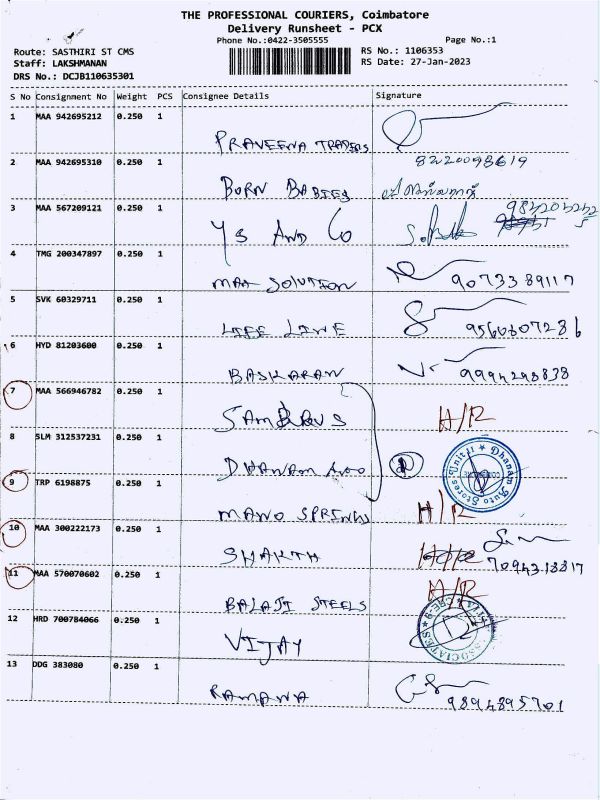 THE PROFESSIONAL COURIERS, Coimbatore
Delivery Runsheet - PCX
Phone No.:0422-3505555 Page No.:1
Route: SASTHIRI ST CMS RS No.: 1106353
Staff: LAKSHMANAN RS Date: 27-Jan-2023
DRS No.: DCJB110635301
S No Consignment No Weight PCS Consignee Details Signature
1 MAA 942695212 0.250 1
PRAVEENA TRADERS
2 MAA 942695310 0.250 1 8220098619
BORN BABIES
3 MAA 567209121 0.250 1
YS AND Co
4 TMG 200347897 0.250 1
MAA SOLUTION 9073389117
5 SVK 60329711 0.250 1
LIFE LINE 9566607286
6 HYD 81203600 0.250 1
BASKARAN 9994298838
7 MAA 566946782 0.250 1 H/R
8 SLM 312537231 0.250 1 Dhanam Auto Stores Unit II
DHANAM Auto
9 TRP 6198875 0.250 1 H/R
MANO SPRINGS
10 MAA 300222173 0.250 1
SHAKTH
11 MAA 570070602 0.250 1 H/R
BALAJI STEELS
12 HRD 700784066 0.250 1
VIJAY
13 DDG 383080 0.250 1
RAMANA 9894895701